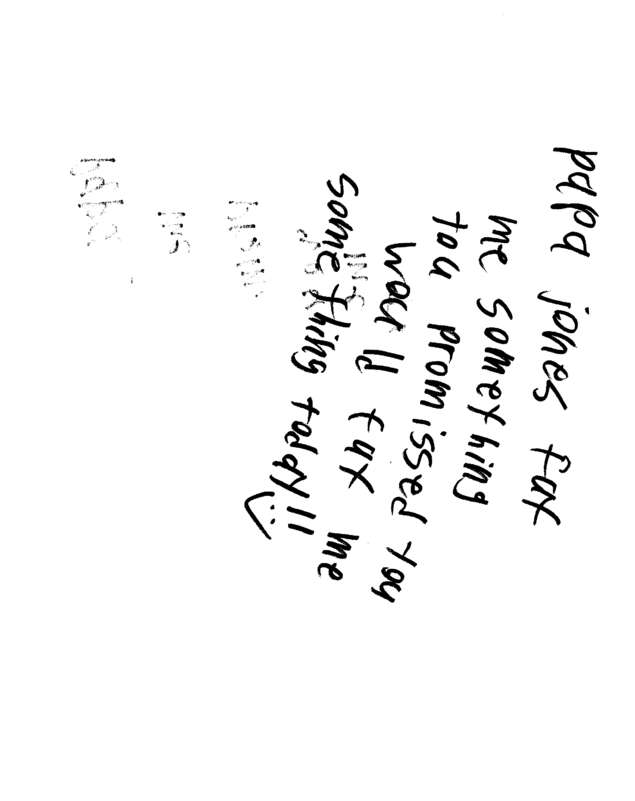 papa jones fax
me something
you promissed you
would fax me
something today!!
:(